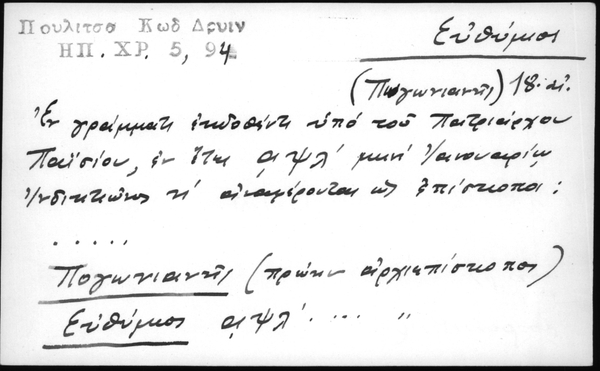 Πουλιτσα Κωδ Δρυιν
ΗΠ. ΧΡ. 5, 94
Εὐθύμιος
(Πωγωνιανῆς) 18. αἰ.
Ἐν γράμματι ἐκδοθέντι ὑπό τοῦ Πατριάρχου
Παϊσίου, ἐν ἔτει αψλ' μηνί Ἰανουαρίῳ
Ἰνδικτιῶνος η' ἀναφέρονται ὡς ἐπίσκοποι:
. . . . . .
Πογωνιανῆς (πρώην ἀρχιεπίσκοπος)
Εὐθύμιος αψλ'. ... "